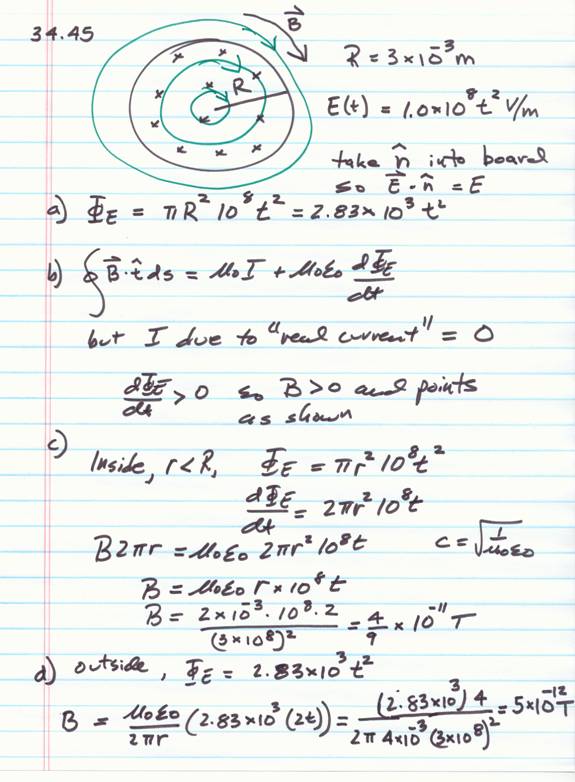 34.45
B⃗
R
R = 3×10⁻³ m
E(t) = 1.0×10⁸ t² V/m
take n̂ into board
so E⃗ · n̂ = E
a) Φ_E = πR² 10⁸ t² = 2.83×10³ t²
b) ∮ B⃗ · t̂ ds = μ₀I + μ₀ε₀ dΦ_E/dt
but I due to "real current" = 0
dΦ_E/dt > 0 so B > 0 and points
as shown
c)
Inside, r<R, Φ_E = πr² 10⁸ t²
dΦ_E/dt = 2πr² 10⁸ t
B2πr = μ₀ε₀ 2πr² 10⁸ t c = √(1/μ₀ε₀)
B = μ₀ε₀ r × 10⁸ t
B = 2×10⁻³ · 10⁸ · 2 / (3×10⁸)² = 4/9 × 10⁻¹¹ T
d) outside, Φ_E = 2.83×10³ t²
B = μ₀ε₀/2πr (2.83×10³ (2t)) = (2.83×10³) 4 / 2π 4×10⁻³ (3×10⁸)² = 5×10⁻¹² T